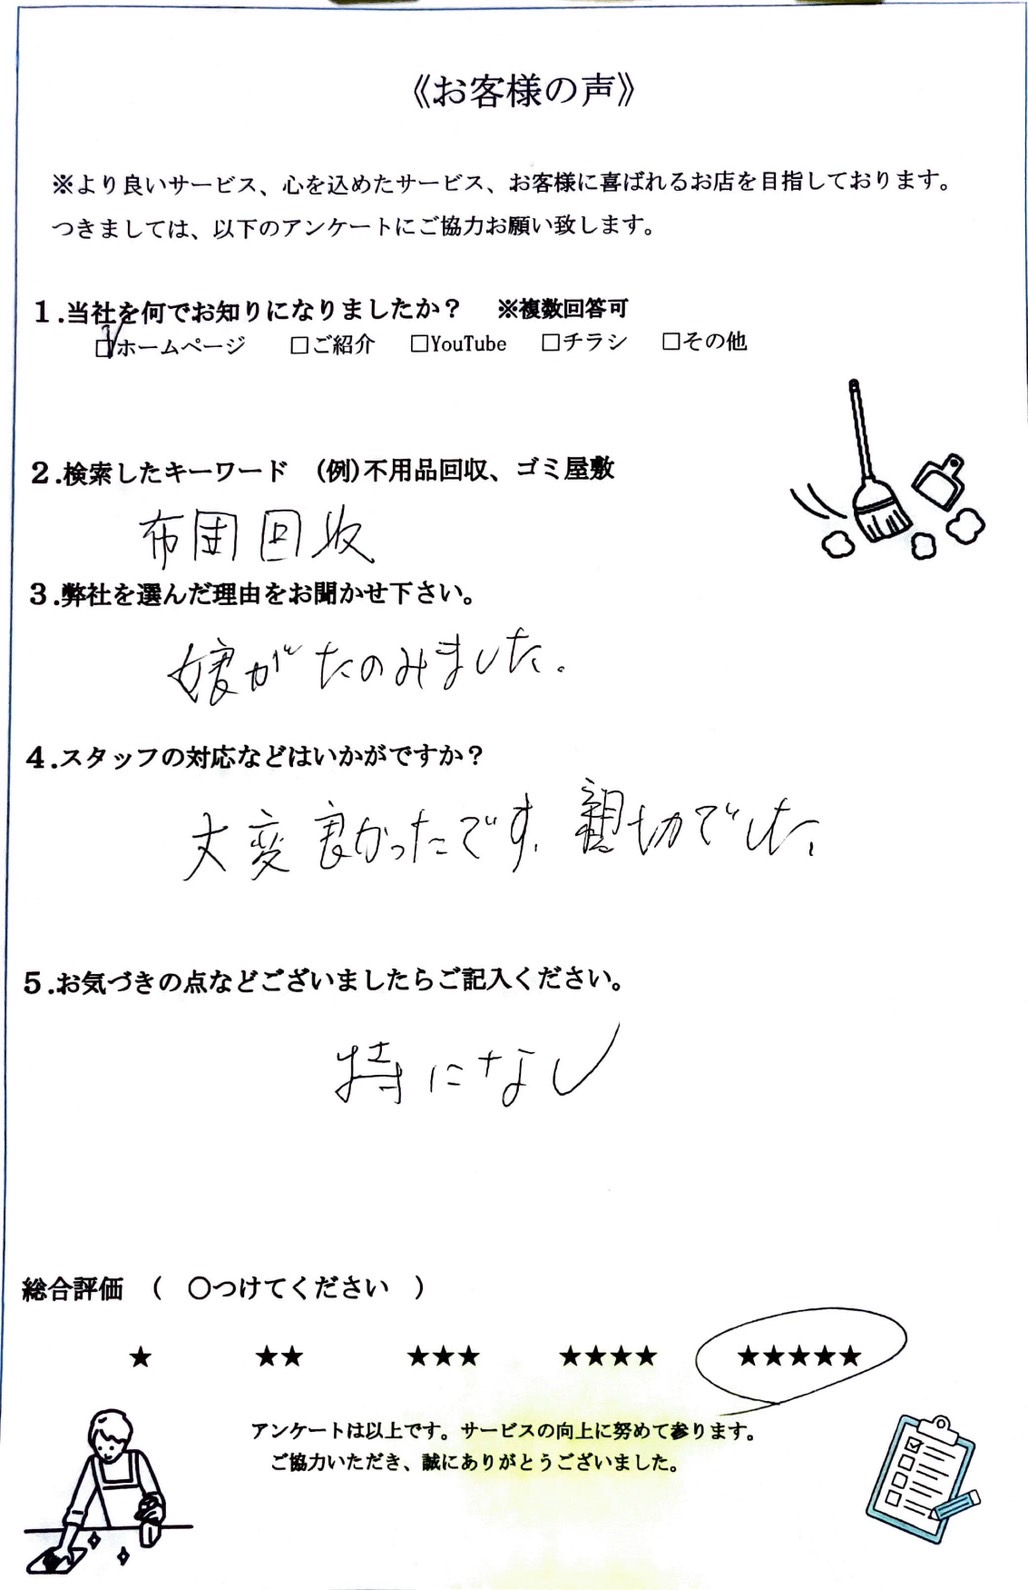 《お客様の声》
※より良いサービス、心を込めたサービス、お客様に喜ばれるお店を目指しております。
つきましては、以下のアンケートにご協力お願い致します。
1.当社を何でお知りになりましたか？　※複数回答可
☑ホームページ　□ご紹介　□YouTube　□チラシ　□その他
2.検索したキーワード　(例)不用品回収、ゴミ屋敷
布団回収
3.弊社を選んだ理由をお聞かせ下さい。
娘がたのみました。
4.スタッフの対応などはいかがですか？
大変良かったです、親切でした、
5.お気づきの点などございましたらご記入ください。
特になし
総合評価　（　〇つけてください　）
★　★★　★★★　★★★★　★★★★★
アンケートは以上です。サービスの向上に努めて参ります。
ご協力いただき、誠にありがとうございました。